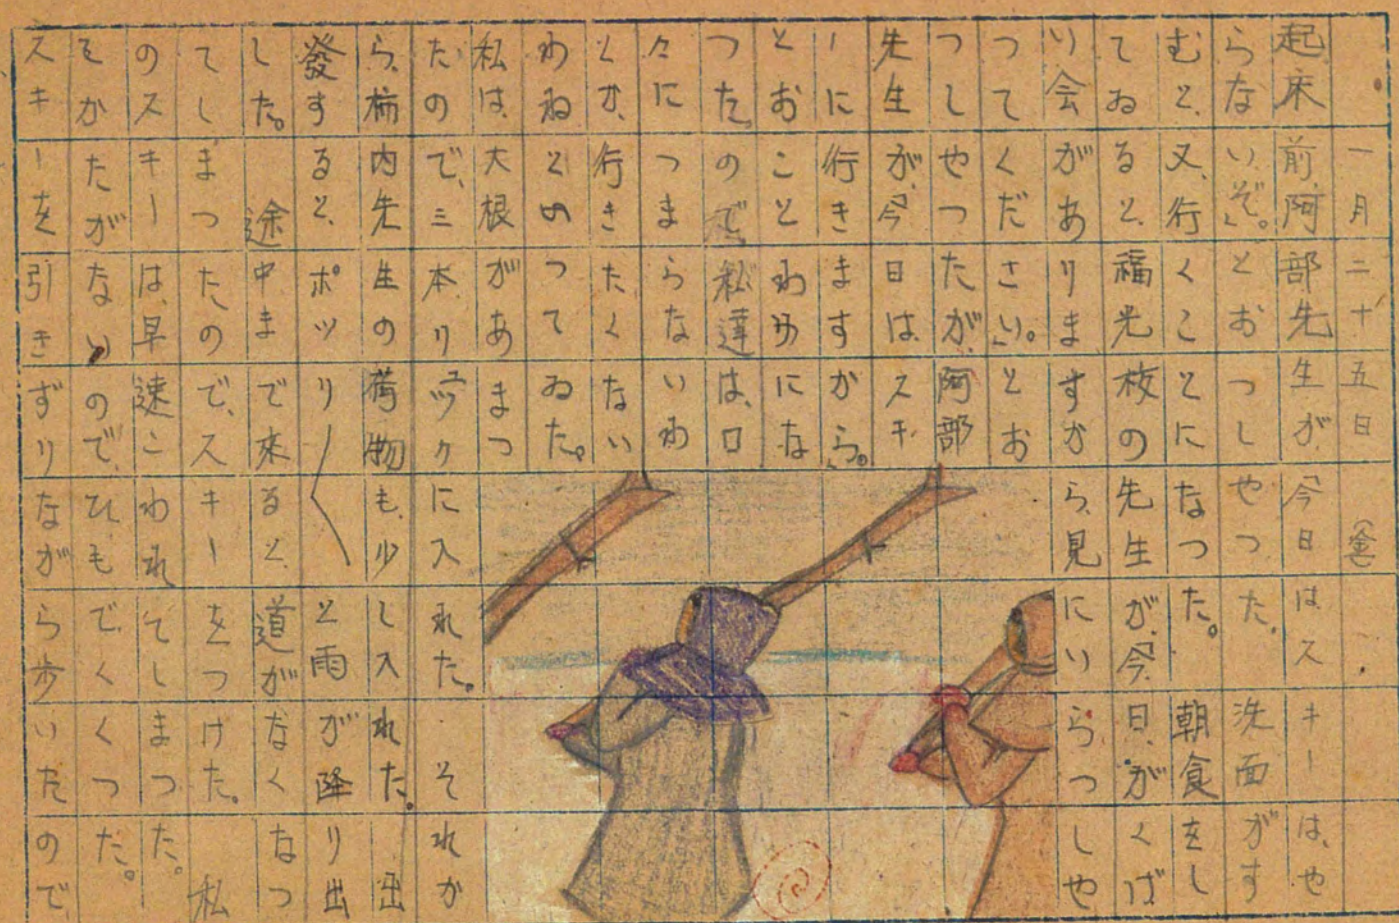 一月二十五日 (金)
起床前、阿部先生が、「今日はスキーは、や
らないぞ。」とおつしやつた。洗面がす
むと、又、行くことになつた。朝食をし
てゐると、福光校の先生が、「今日、がくげ
い会がありますから、見にいらつしや
つてください。」とお
つしやつたが、阿部
先生が、「今日は、スキ
ーに行きますから。」
とおことわりにな
つた。ので、私達は、口
々に「つまらないわ
とか、行きたくない
わねとのつてゐた。
私は、大根があまつ
たので、三本リックに入れた。それか
ら、柿内先生の荷物も、少し入れた。出
發すると、ポツリ〱と雨が降り出
した。途中まで来ると、道がなくなつ
てしまつたので、スキーをつけた。私
のスキーは、早速こわれてしまつた。
そかたがないので、ひもでくくつた。
スキーを引きずりながら歩いたので、